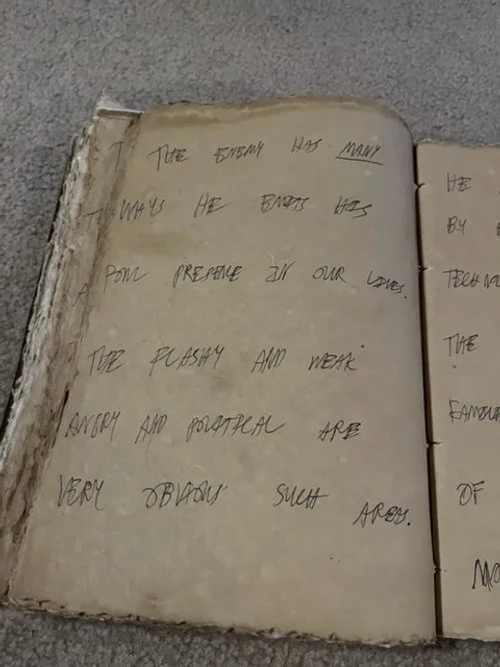 THE ENEMY HAS MANY
WAYS HE EMITS HIS
FOUL PRESENCE IN OUR LIVES.
THE FLASHY AND WEAK
ANGRY AND POLITICAL ARE
VERY OBVIOUS SUCH
AREAS.
HE
BY
THE
OF